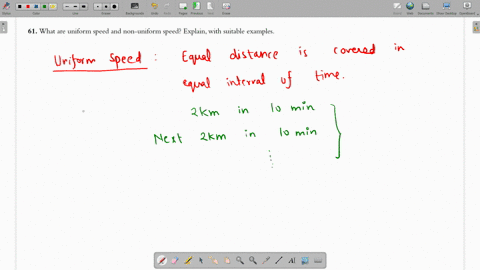 61. What are uniform speed and non-uniform speed? Explain, with suitable examples.
Uniform Speed : Equal distance is covered in
equal interval of time.
2km in 10 min
Next 2km in 10 min